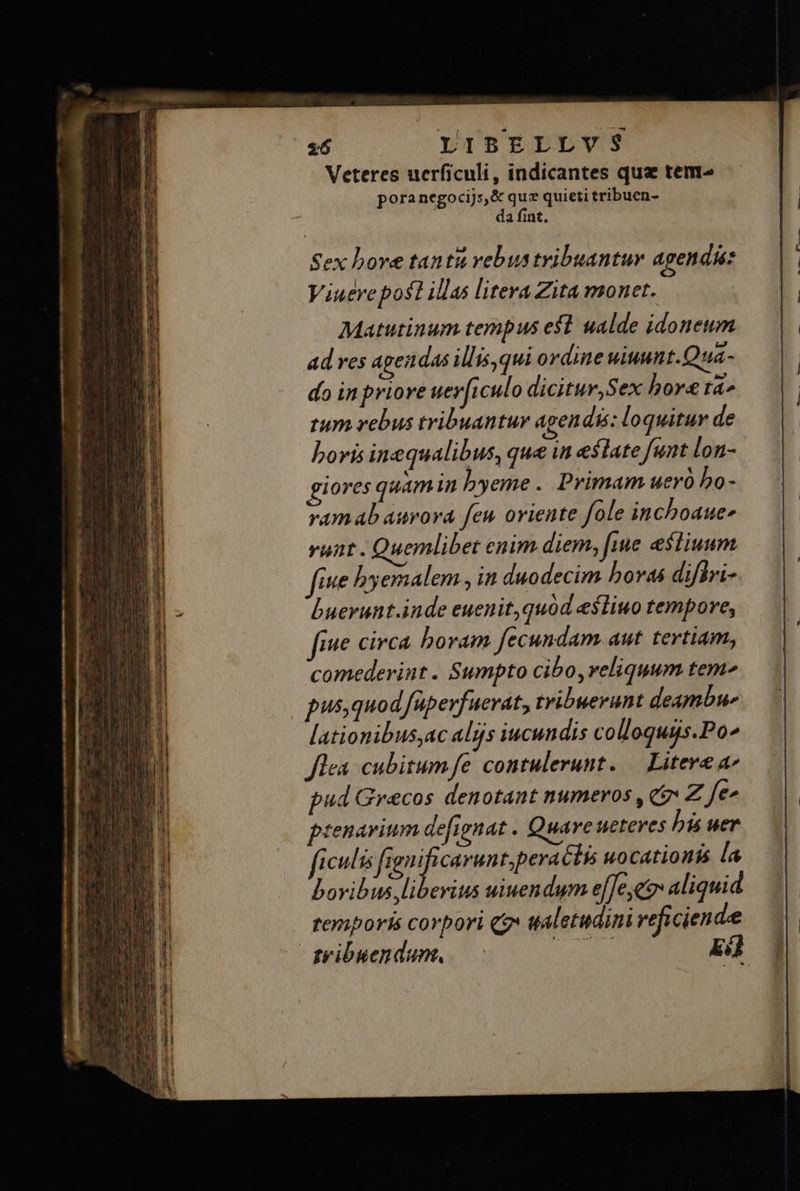 26 LIBELLVS
Veteres uerſiculi, indicantes quæ tem-
pora negocijs, & quæ quieti tribuen-
da ſint.
Sex horæ tantū rebus tribuantur agendis:
Viuere poſt illas litera Zita monet.
Matutinum tempus eſt ualde idoneum
ad res agendas illis, qui ordine uiuunt. Quā-
do in priore uerſiculo dicitur, Sex horæ tā-
tum rebus tribuantur agendis: loquitur de
horis inæqualibus, quæ in æſtate ſunt lon-
giores quàm in hyeme. Primam uerò ho-
ram ab aurora ſeu oriente ſole inchoaue-
runt. Quemlibet enim diem, ſiue æſtiuum
ſiue hyemalem, in duodecim horas diſtri-
buerunt. inde euenit, quòd æſtiuo tempore,
ſiue circa horam ſecundam aut tertiam,
comederint. Sumpto cibo, reliquum tem-
pus, quod ſuperfuerat, tribuerunt deambu-
lationibus, ac alijs iucundis colloquijs. Po-
ſtea cubitum ſe contulerunt. Literæ a-
pud Græcos denotant numeros, & Z ſe-
ptenarium deſignat. Quare ueteres his uer
ſiculis ſignificarunt, peractis uocationis la
boribus, liberius uiuendum eſſe, & aliquid
temporis corpori & ualetudini reficiendæ
tribuendum. Eſt